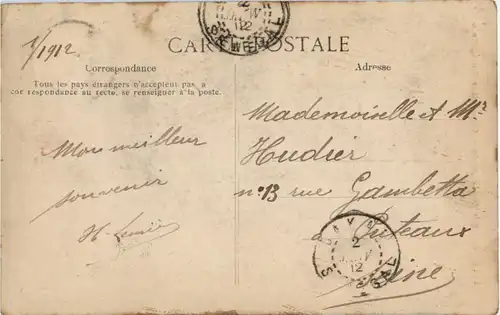 1/1912
CARTE POSTALE
Correspondance
Adresse
Tous les pays étrangers n'acceptent pas a
correspondance au recto, se renseigner à la poste.
Mon meilleur
souvenir
Mademoiselle et Mr
Hudier
n° 13 rue Gambetta
à Puteaux
Seine
2
JANV
12